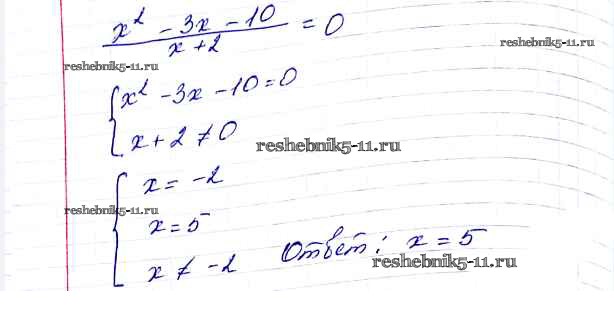 x² - 3x - 10 / x + 2 = 0
reshebnik5-11.ru
reshebnik5-11.ru
{ x² - 3x - 10 = 0
x + 2 ≠ 0
reshebnik5-11.ru
{ x = -2
reshebnik5-11.ru
x = 5
x ≠ -2
Ответ: x = 5
reshebnik5-11.ru